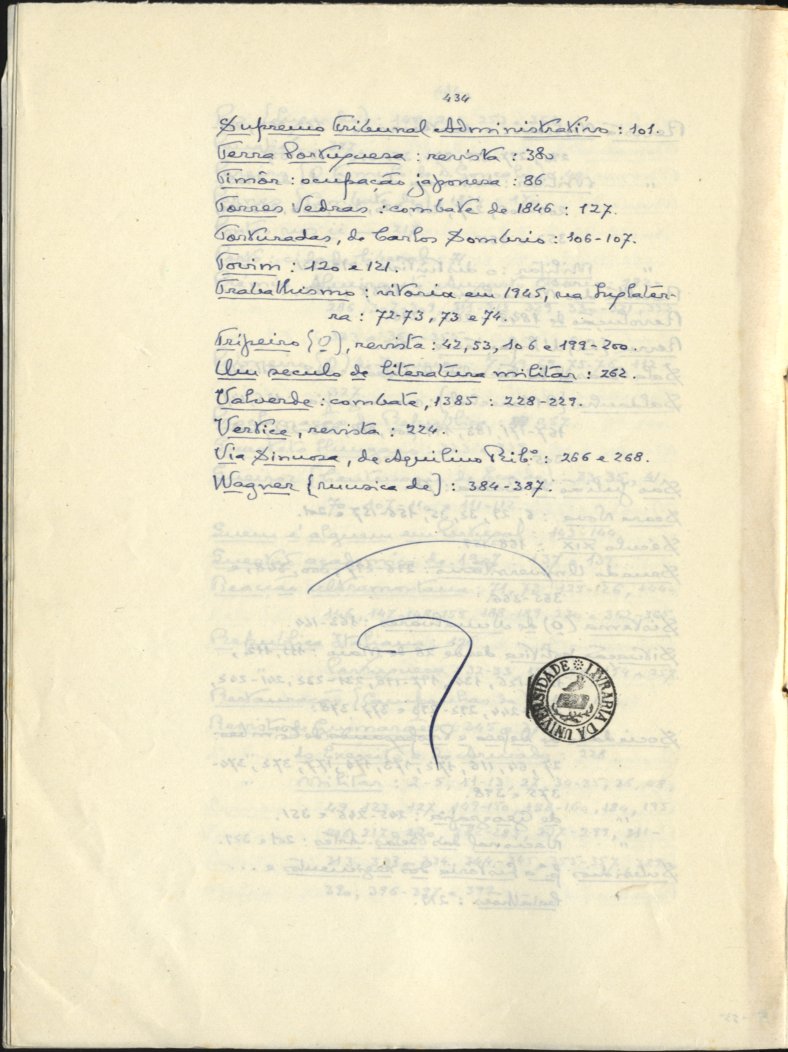 434
Supremo Tribunal Administrativo : 101.
Terra Portuguesa : revista : 380
Timôr : ocupação japonesa : 86
Torres Vedras : combate de 1846 : 127.
Torturadas, de Carlos Sombrio : 106-107.
Tovim : 120 e 121.
Trabalhismo : vitoria em 1945, na Inglater-
ra : 72-73, 73 e 74.
Tripeiro (O), revista : 42, 53, 106 e 199-200.
Um seculo de literatura militar : 262.
Valverde : combate, 1385 : 228-229.
Vertice, revista : 224.
Via Sinuosa, de Aquilino Rib.º : 266 e 268.
Wagner (musica de) : 384-387.
LIVRARIA DA UNIVERSIDADE